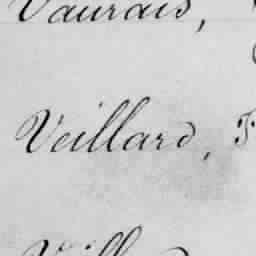 Vaurais,
Veillard, F